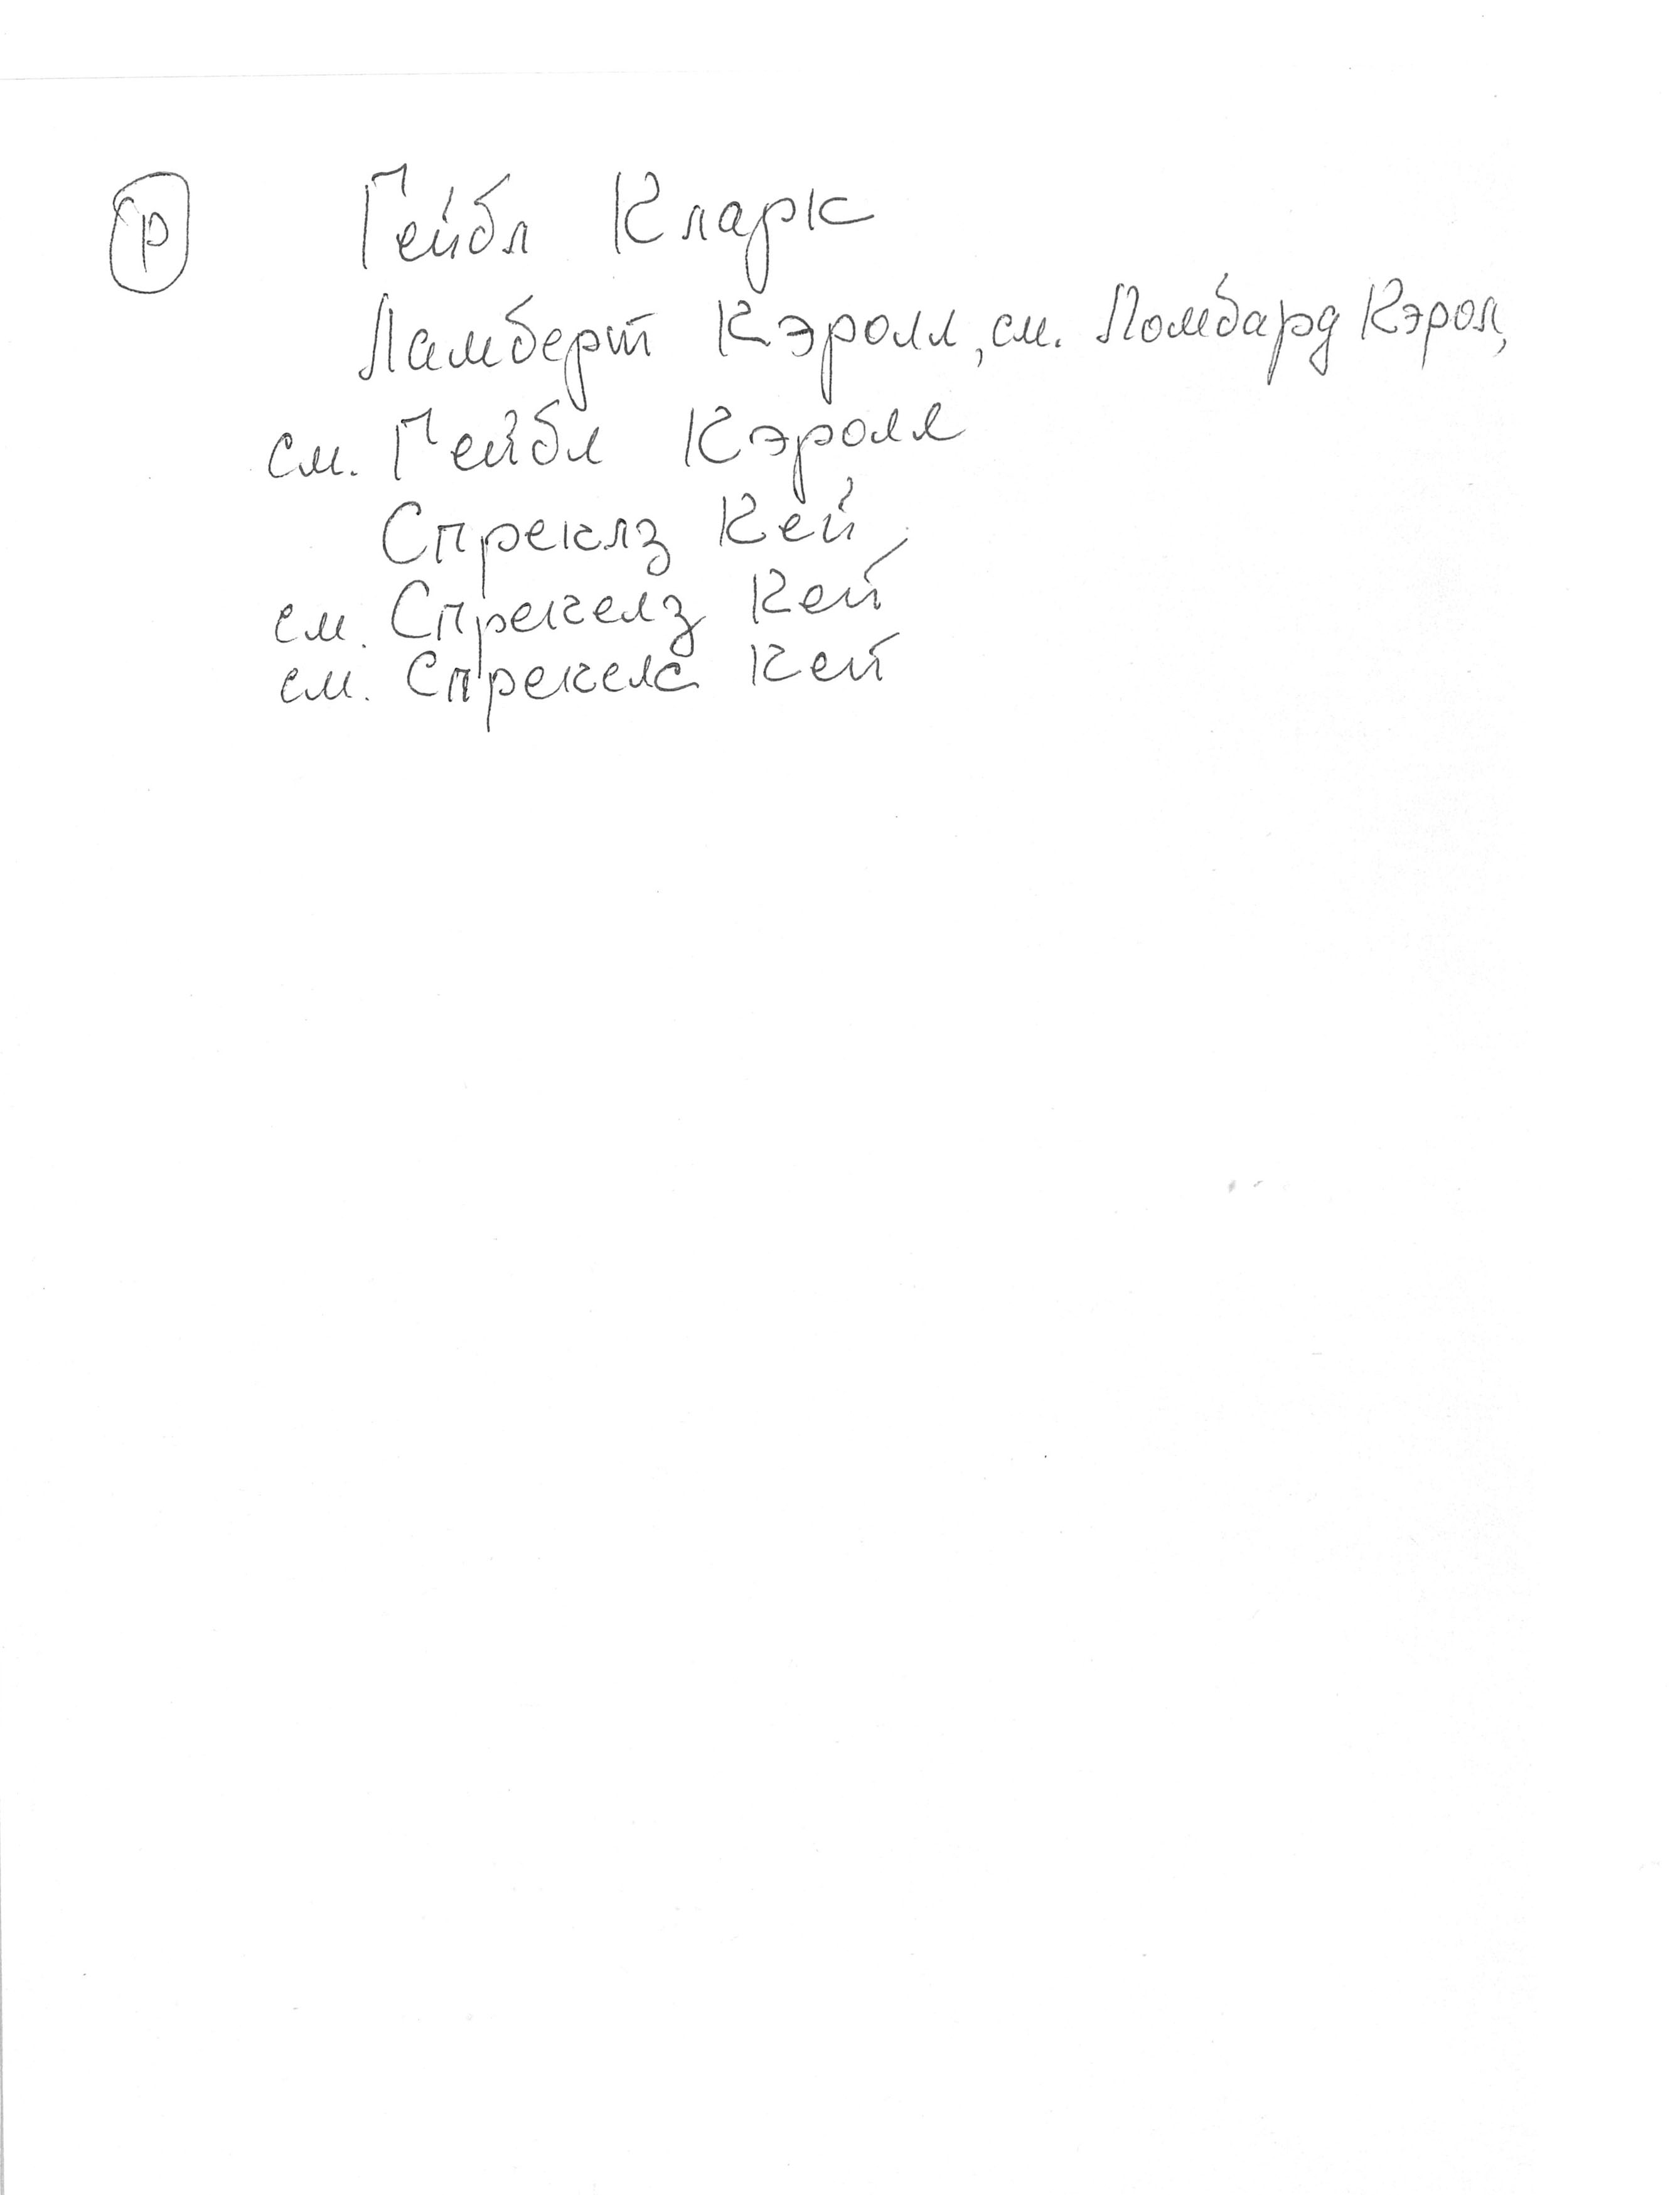 р Гейбл Кларк
Ламберт Кэролл, см. Ломбард Кэрол,
см. Гейбл Кэролл
Спреклз Кей
см. Спрекелз Кей
см. Спрекелс Кей